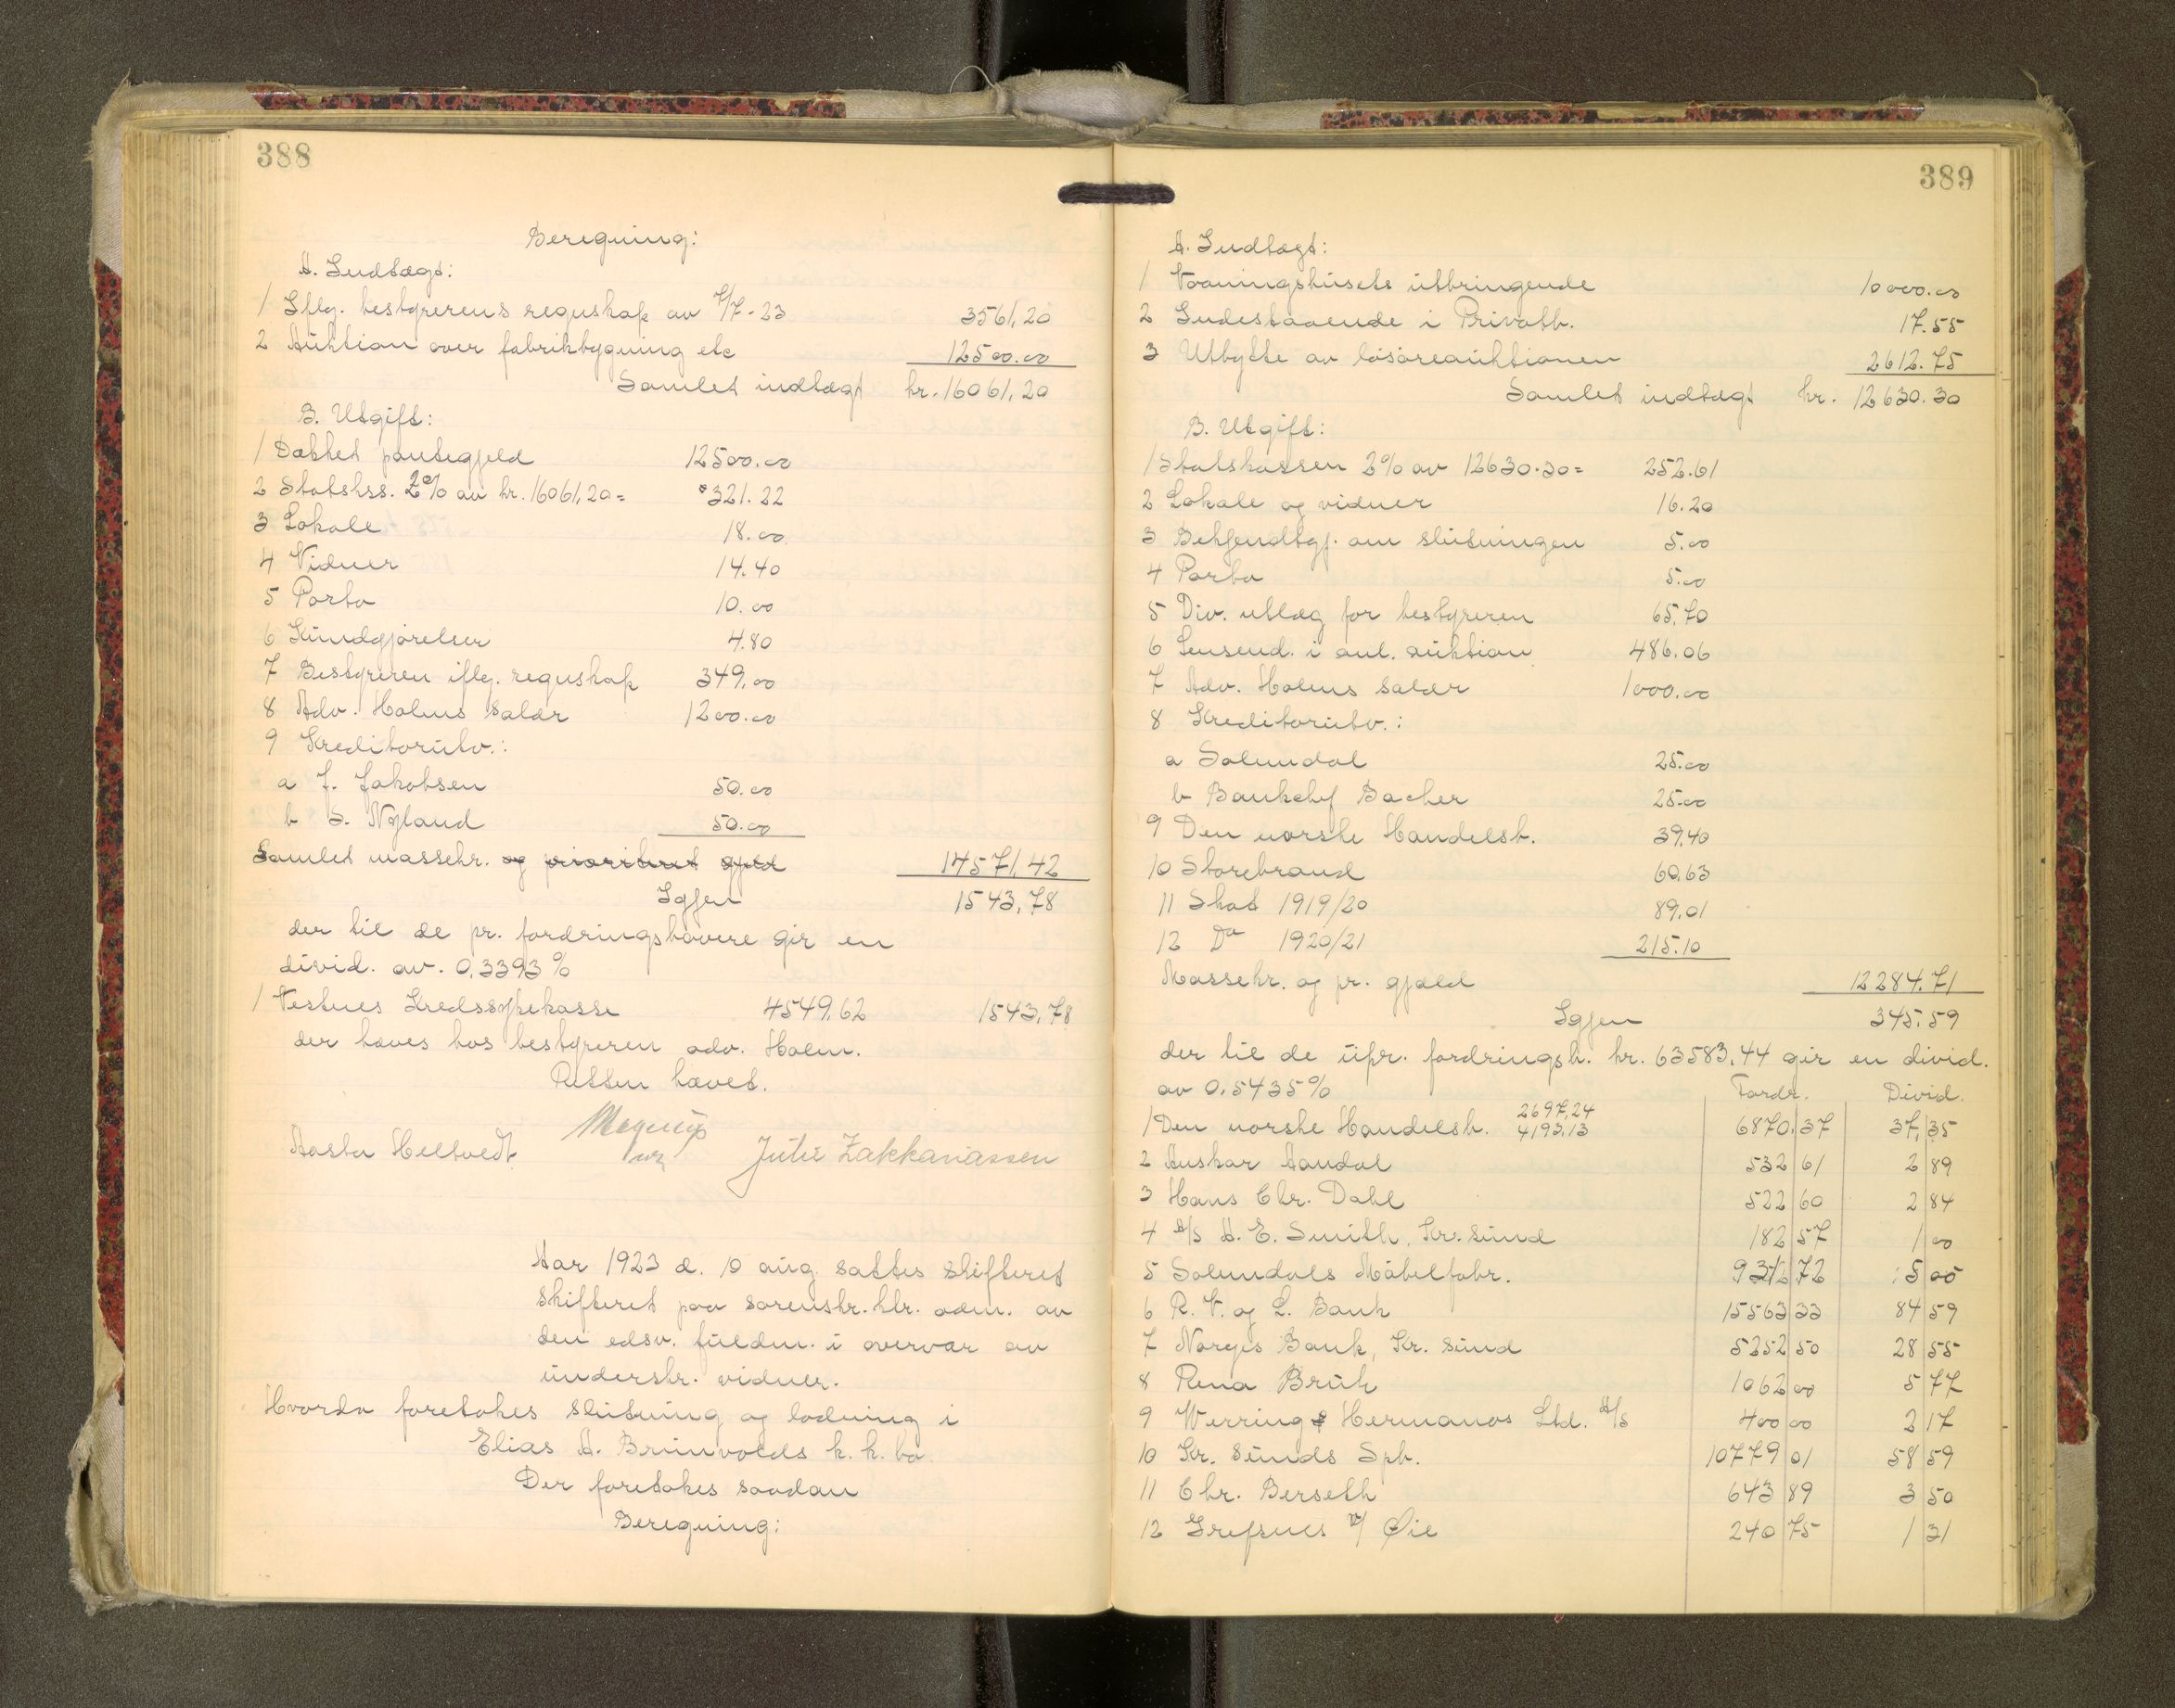 388
Beregning:
A. Indtægt:
1 Iflg. bestyrerens regnskap av 7/7-23 3561,20
2 Auktion over fabrikbygning etc 12500.00
Samlet indtægt kr. 16061,20
B. Utgift:
1 Dækket pantegjeld 12500.00
2 Statskss. 2% av kr. 16061,20= 321.22
3 Lokale 18.00
4 Vidner 14.40
5 Porto 10.00
6 Kundgjørelser 4.80
7 Bestyreren iflg. regnskap 349,00
8 Adv. Holms salær 1200.00
9 Kreditorutv.:
a J. Jakobsen 50.00
b S. Nyland 50.00
Samlet massekr. og prioritert gjeld 14571,42
Igjen 1543,78
der til de pr. fordringshavere gir en
divid. av. 0,3393%
1 Vestnes Kredssykekasse 4549,62 1543,78
der hæves hos bestyreren adv. Holm.
Retten hævet.
Aasta Heltvedt Julie Zakkariassen
Aar 1923 d. 10 aug. sattes skifteret
skifteret paa sorenskr.ktr. adm. av
den edsv. fuldm. i overvær av
underskr. vidner.
Hvorda foretokes slutning og lodning i
Elias A. Brunvolds k. k. bo.
Der foretokes saadan
Beregning:
389
A. Indtægt:
1 Vaaningshusets utbringende 10000.00
2 Indestaaende i Privatb. 17.55
3 Utbytte av løsøreauktionen 2612.75
Samlet indtægt kr. 12630.30
B. Utgift:
1 Statskassen 2% av 12630.30= 252.61
2 Lokale og vidner 16.20
3 Bekjendtgj. om slutningen 5.00
4 Porto 5.00
5 Div. utlæg for bestyreren 65,70
6 Lensmd. i anl. auktion 486.06
7 Adv. Holms salær 1000.00
8 Kreditorutv.:
a Solemdal 25.00
b Bankchef Bacher 25.00
9 Den norske Handelsb. 39,40
10 Storebrand 60,63
11 Skat 1919/20 89.01
12 Do 1920/21 215.10
Massekr. og pr. gjæld 12284.71
Igjen 345.59
der til de upr. fordringsh. kr. 63583,44 gir en divid.
av 0.5435% Fordr. Divid.
1 Den norske Handelsb. 2697,24 4193,13 6870,37 37,35
2 Anskar Aandal 532 61 2 89
3 Hans Chr. Dahl 522 60 2 84
4 A/S A. E. Smith, Kr.sund 182 57 1 00
5 Solemdals Møbelfabr. 72 5
6 R. V. og L. Bank 15563 33 84 59
7 Norges Bank, Kr.sund 5252 50 28 55
8 Rena Bruk 1062 00 5 77
9 Werring & Hermanos Ltd. A/S 400 00 2 17
10 Kr.sunds Spb. 10779 01 58 59
11 Chr. Berseth 643 89 3 50
12 Grefsnes v/ Øie 240 75 1 31